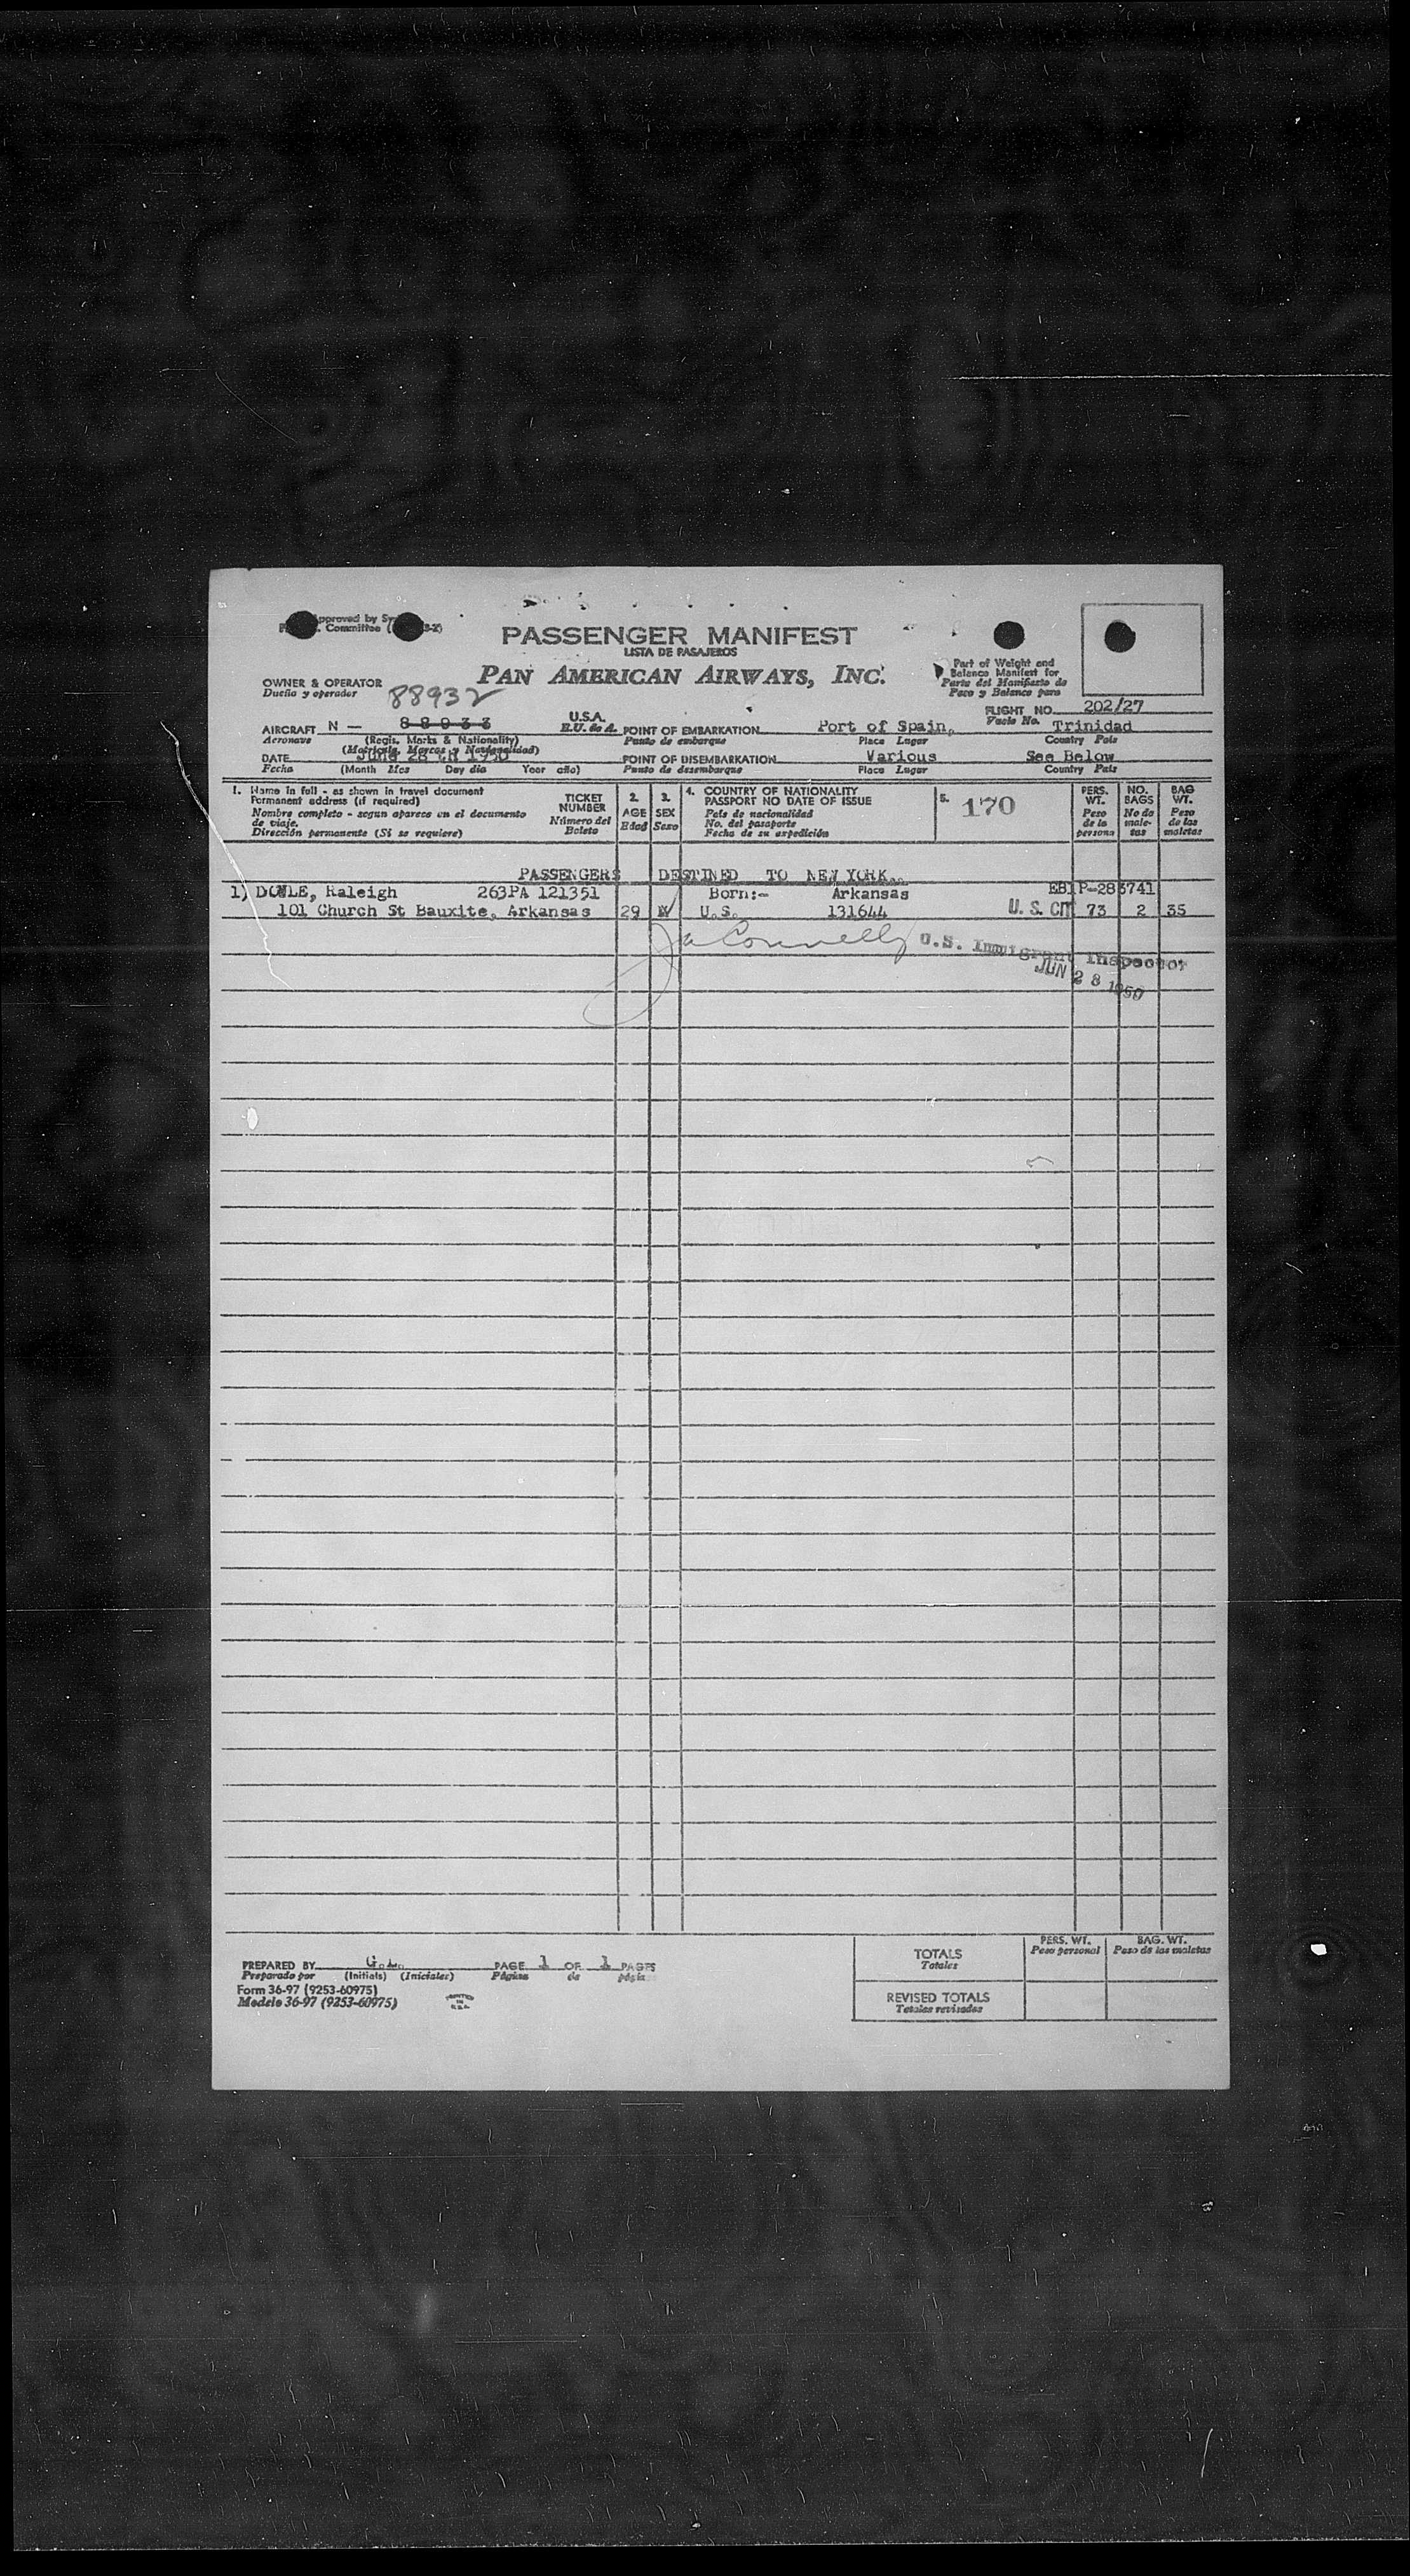 pproved by
Committee
PASSENGER MANIFEST
LISTA DE PASAJEROS
PAN AMERICAN AIRWAYS, INC.
Part of Weight and
Balance Manifest for
Parte del Manifiesto de
Peso y Balance para
OWNER & OPERATOR
Dueño y operador
88932
FLIGHT NO. 202/27
Vuelo No.
AIRCRAFT N — 88933
Aeronave
(Regis. Marks & Nationality)
(Matricula, Marcas y Nacionalidad)
U.S.A.
E.U. de A.
POINT OF EMBARKATION Port of Spain, Trinidad
Punto de embarque Place Lugar Country Pais
DATE June 28 th 1950
Fecha (Month Mes Day dia Year año)
POINT OF DISEMBARKATION Various See Below
Punto de desembarque Place Lugar Country Pais
1. Name in full - as shown in travel document
Permanent address (if required)
Nombre completo - segun aparece en el documento
de viaje.
Dirección permanente (Si se requiere)
TICKET
NUMBER
Número del
Boleto
2.
AGE
Edad
3.
SEX
Sexo
4. COUNTRY OF NATIONALITY
PASSPORT NO DATE OF ISSUE
Pais de nacionalidad
No. del pasaporte
Fecha de su expedición
5. 170
PERS.
WT.
Peso
de la
persona
NO.
BAGS
No de
male-
tas
BAG
WT.
Peso
de las
maletas
PASSENGERS DESTINED TO NEW YORK..
1) DOYLE, Raleigh 263PA 121351 Born:- Arkansas EB1P-283741
101 Church St Bauxite, Arkansas 29 M U.S. 131644 U. S. CIT 73 2 35
Connelly U.S. Immigrant Inspector
JUN 28 1950
PREPARED BY G.L. PAGE 1 OF 1 PAGES
Preparado por (Initials) (Iniciales) Página de págin
Form 36-97 (9253-60975)
Modelo 36-97 (9253-60975)
PRINTED
IN
U.S.A.
PERS. WT.
Peso personal
BAG. WT.
Peso de las maletas
TOTALS
Totales
REVISED TOTALS
Totales revisados